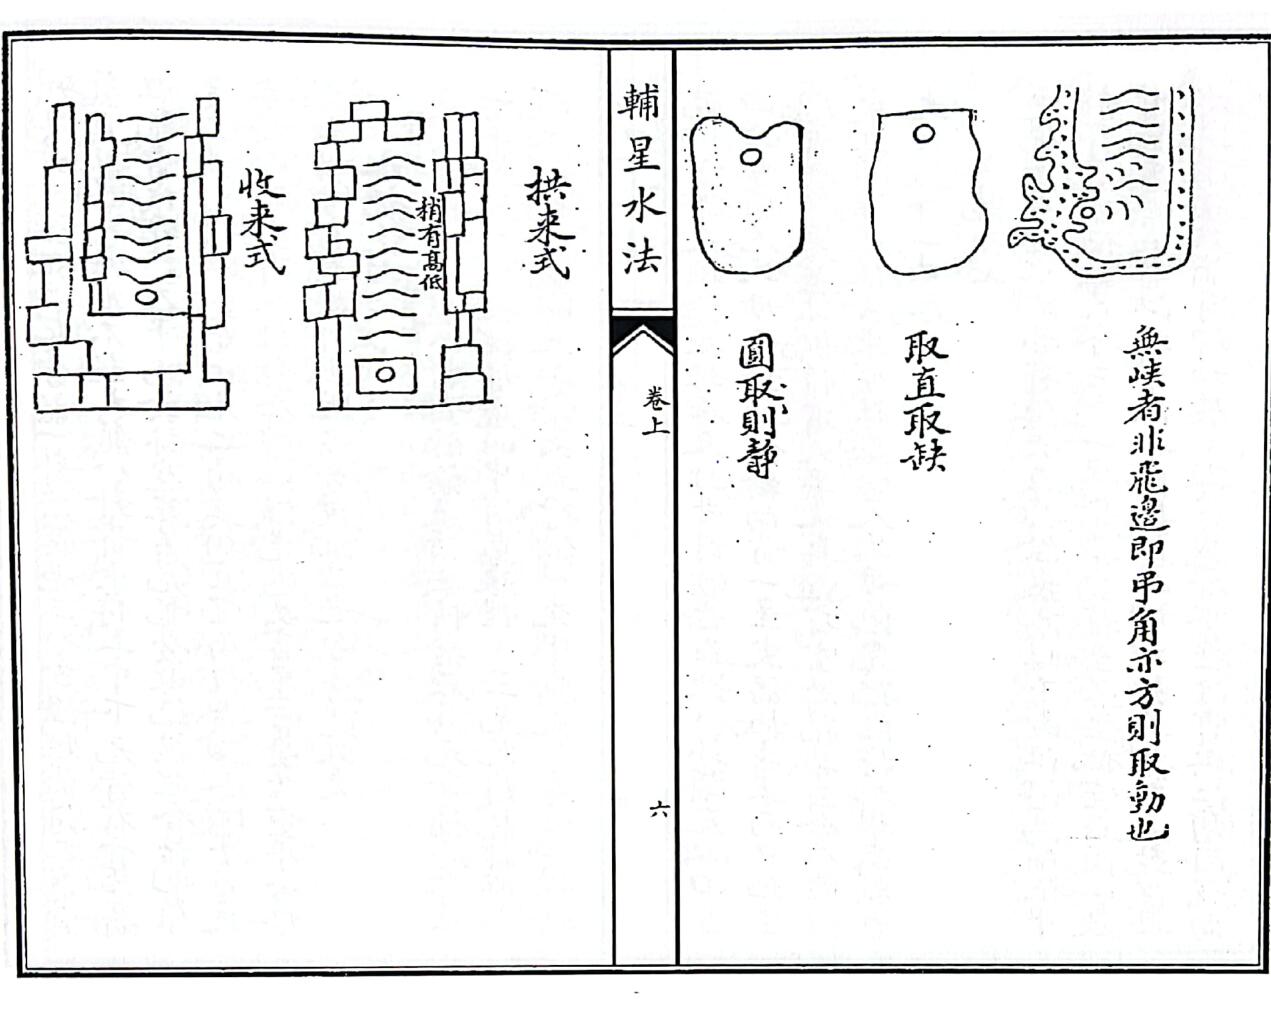 無峽者非飛邊即吊角亦方則取動也
取直取缺
圓取則静
輔星水法
卷上
六
拱來式
稍有高低
收來式